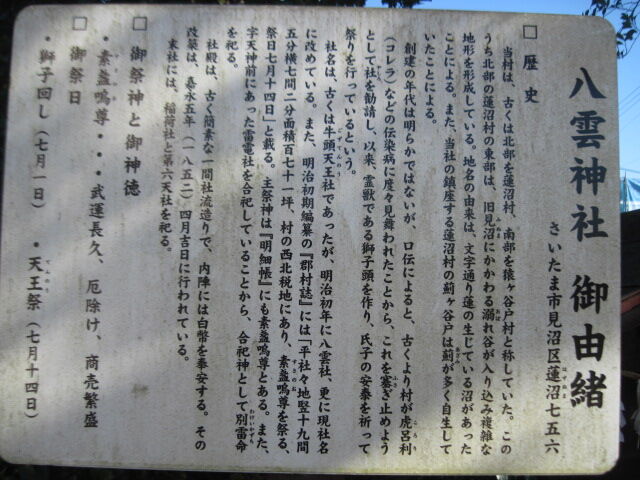 八雲神社 御由緒
さいたま市見沼区蓮沼七五六
□ 歴史
当村は、古くは北部を蓮沼村、南部を猿ヶ谷戸村と称していた。この
うち北部の蓮沼村の東部は、旧見沼にかかわる溺れ谷が入り込み複雑な
地形を形成している。地名の由来は、文字通り蓮の生じている沼があった
ことによる。また、当社の鎮座する蓮沼村の薊ヶ谷戸は薊が多く自生して
いたことによる。
創建の年代は明らかではないが、口伝によると、古くより村が虎呂利
(コレラ)などの伝染病に度々見舞われたことから、これを塞ぎ止めよう
として社を勧請し、以来、霊獣である獅子頭を作り、氏子の安泰を祈って
祭りを行っているという。
社名は、古くは牛頭天王社であったが、明治初年に八雲社、更に現社名
に改めている。また、明治初期編纂の『郡村誌』には「平社々地竪十九間
五分横七間二分面積百七十一坪、村の西北税地にあり、素盞嗚尊を祭る、
祭日七月十四日」と載る。主祭神は『明細帳』にも素盞嗚尊とある。また、
字天神前にあった雷電社を合祀していることから、合祀神として別雷命
を祀る。
社殿は、古く簡素な一間社流造りで、内陣には白幣を奉安する。その
改築は、嘉永五年(一八五二)四月吉日に行われている。
末社には、稲荷社と第六天社を祀る。
□ 御祭神と御神徳
・素盞嗚尊・・・武運長久、厄除け、商売繁盛
□ 御祭日
・獅子回し(七月一日) ・天王祭(七月十四日)